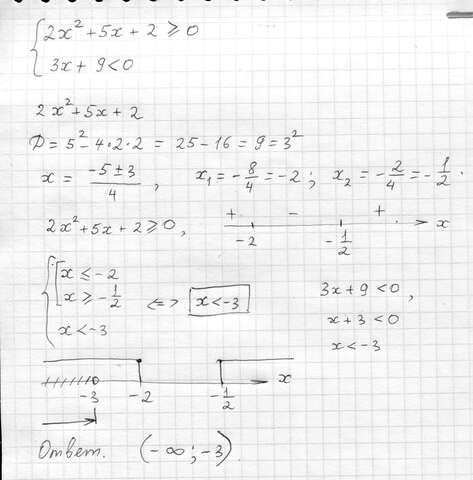 { 2x² + 5x + 2 ≥ 0
{ 3x + 9 < 0
2x² + 5x + 2
D = 5² - 4·2·2 = 25 - 16 = 9 = 3²
x = (-5 ± 3)/4 , x₁ = -8/4 = -2 ; x₂ = -2/4 = -1/2 .
2x² + 5x + 2 ≥ 0, + - + x
-2 -1/2
{ [ x ≤ -2
{ [ x ≥ -1/2 <=> x < -3
{ x < -3
3x + 9 < 0,
x + 3 < 0
x < -3
-3 -2 -1/2 x
Ответ. (-∞; -3).